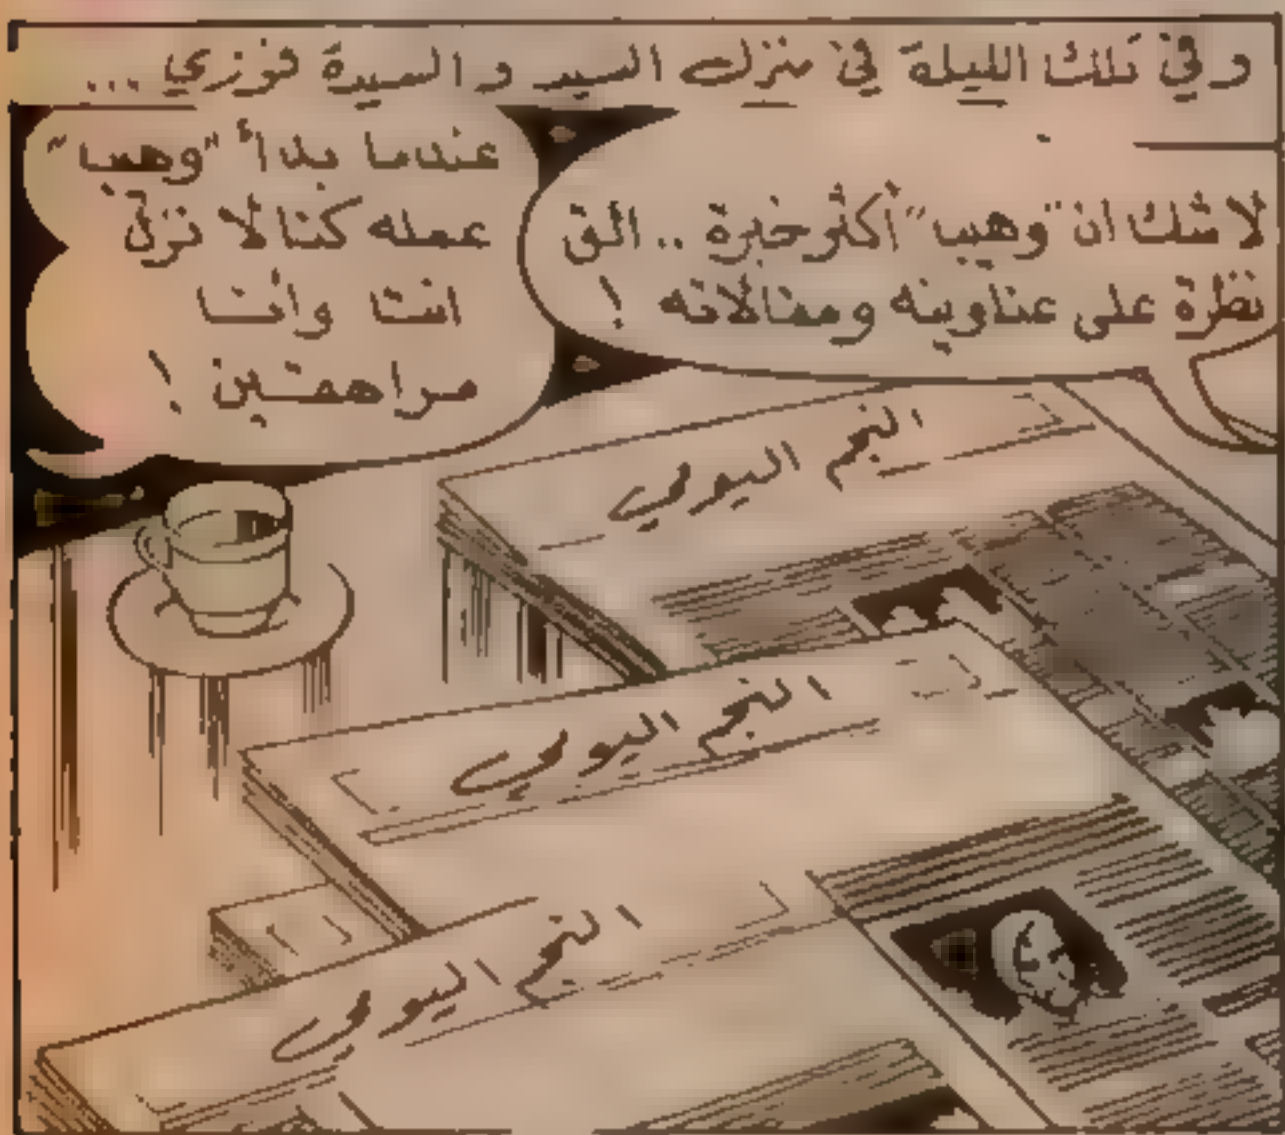 وفي تلك الليلة في منزل السيد والسيدة فوزي ...
لا شك ان "وهيب" أكثر خبرة .. الق
نظرة على عناوينه ومقالاته !
عندما بدأ "وهيب"
عمله كنا لا نزال
انت وأنا
مراهقين !
النجم اليومي
النجم اليومي
النجم اليومي